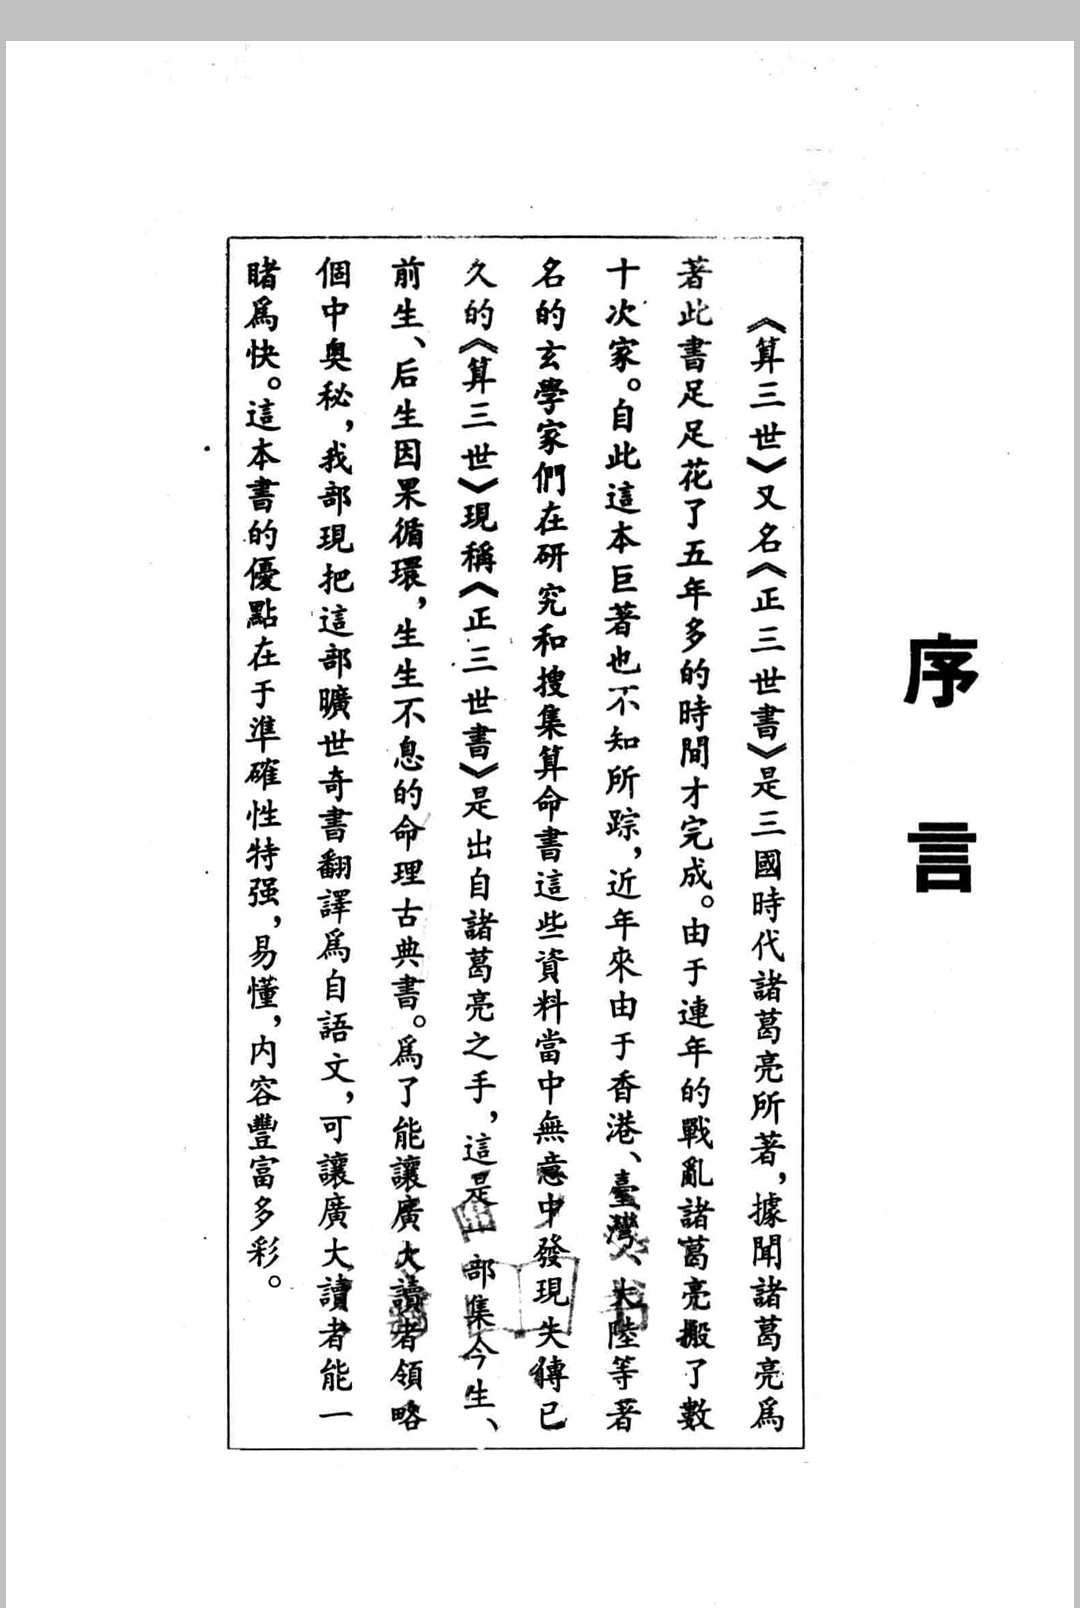 序言
《算三世》又名《正三世書》是三國時代諸葛亮所著，據聞諸葛亮爲
著此書足足花了五年多的時間才完成。由于連年的戰亂諸葛亮搬了數
十次家。自此這本巨著也不知所踪，近年來由于香港、臺灣、大陸等著
名的玄學家們在研究和搜集算命書這些資料當中無意中發現失傳已
久的《算三世》現稱《正三世書》是出自諸葛亮之手，這是一部集今生、
前生、后生因果循環，生生不息的命理古典書。爲了能讓廣大讀者領略
個中奥秘，我部現把這部曠世奇書翻譯爲自語文，可讓廣大讀者能一
睹爲快。這本書的優點在于準確性特强，易懂，内容豐富多彩。